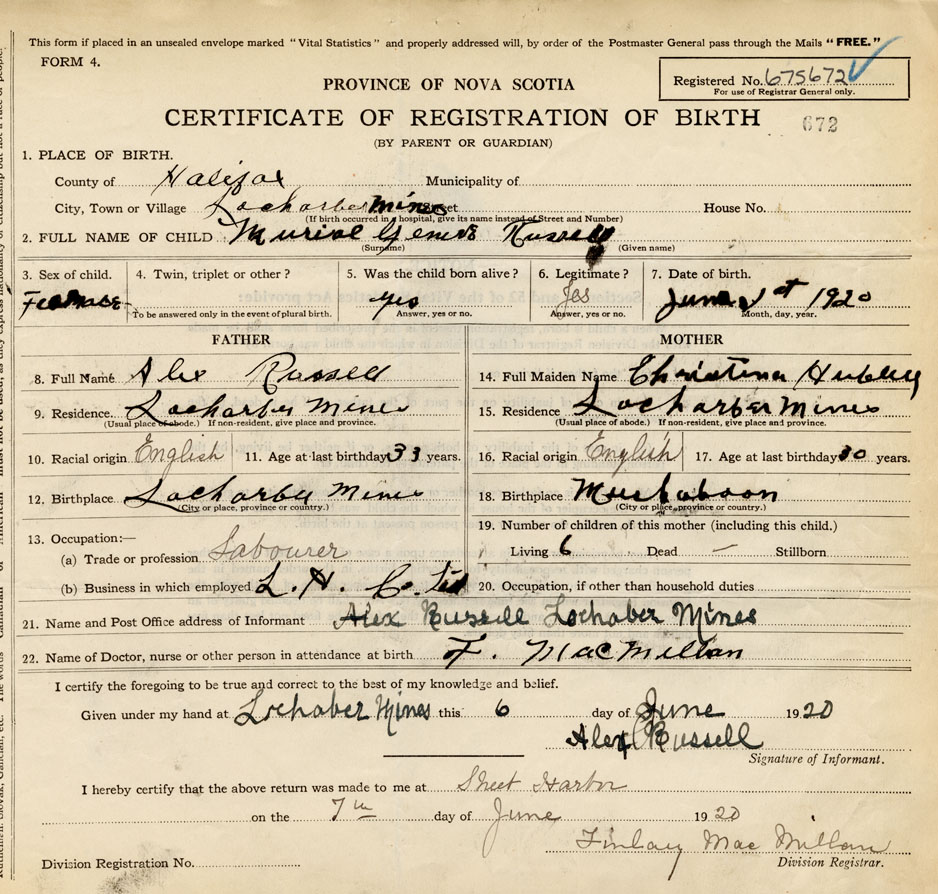 This form if placed in an unsealed envelope marked "Vital Statistics" and properly addressed will, by order of the Postmaster General pass through the Mails "FREE."
FORM 4.
Registered No. 675672
For use of Registrar General only.
PROVINCE OF NOVA SCOTIA
CERTIFICATE OF REGISTRATION OF BIRTH
672
(BY PARENT OR GUARDIAN)
1. PLACE OF BIRTH.
County of Halifax Municipality of
City, Town or Village Locharber Mines Street House No.
(If birth occurred in hospital, give its name instead of Street and Number)
2. FULL NAME OF CHILD Russell
(Surname) (Given name)
3. Sex of child. 4. Twin, triplet or other? 5. Was the child born alive? 6. Legitimate? 7. Date of birth.
Female yes Yes June 1st 1920
To be answered only in the event of plural birth. Answer, yes or no. Answer, yes or no. Month, day, year.
FATHER MOTHER
8. Full Name Alex Russell 14. Full Maiden Name Christina Hubley
9. Residence. Locharber Mines 15. Residence Locharber Mines
(Usual place of abode.) If non-resident, give place and province. (Usual place of abode.) If non-resident, give place and province.
10. Racial origin English 11. Age at last birthday 33 years. 16. Racial origin English 17. Age at last birthday 30 years.
12. Birthplace Locharber Mines 18. Birthplace
(City or place, province or country.) (City or place, province or country.)
19. Number of children of this mother (including this child.)
13. Occupation:—
(a) Trade or profession Labourer Living 6 Dead — Stillborn
(b) Business in which employed L. H. Co. Ltd 20. Occupation, if other than household duties
21. Name and Post Office address of Informant Alex Russell Lochaber Mines
22. Name of Doctor, nurse or other person in attendance at birth F. MacMillan
I certify the foregoing to be true and correct to the best of my knowledge and belief.
Given under my hand at Lochaber Mines this 6 day of June 1920
Alex Russell
Signature of Informant.
I hereby certify that the above return was made to me at Sheet Harbor
on the 7th day of June 1920
Finlay MacMillan
Division Registration No. Division Registrar.